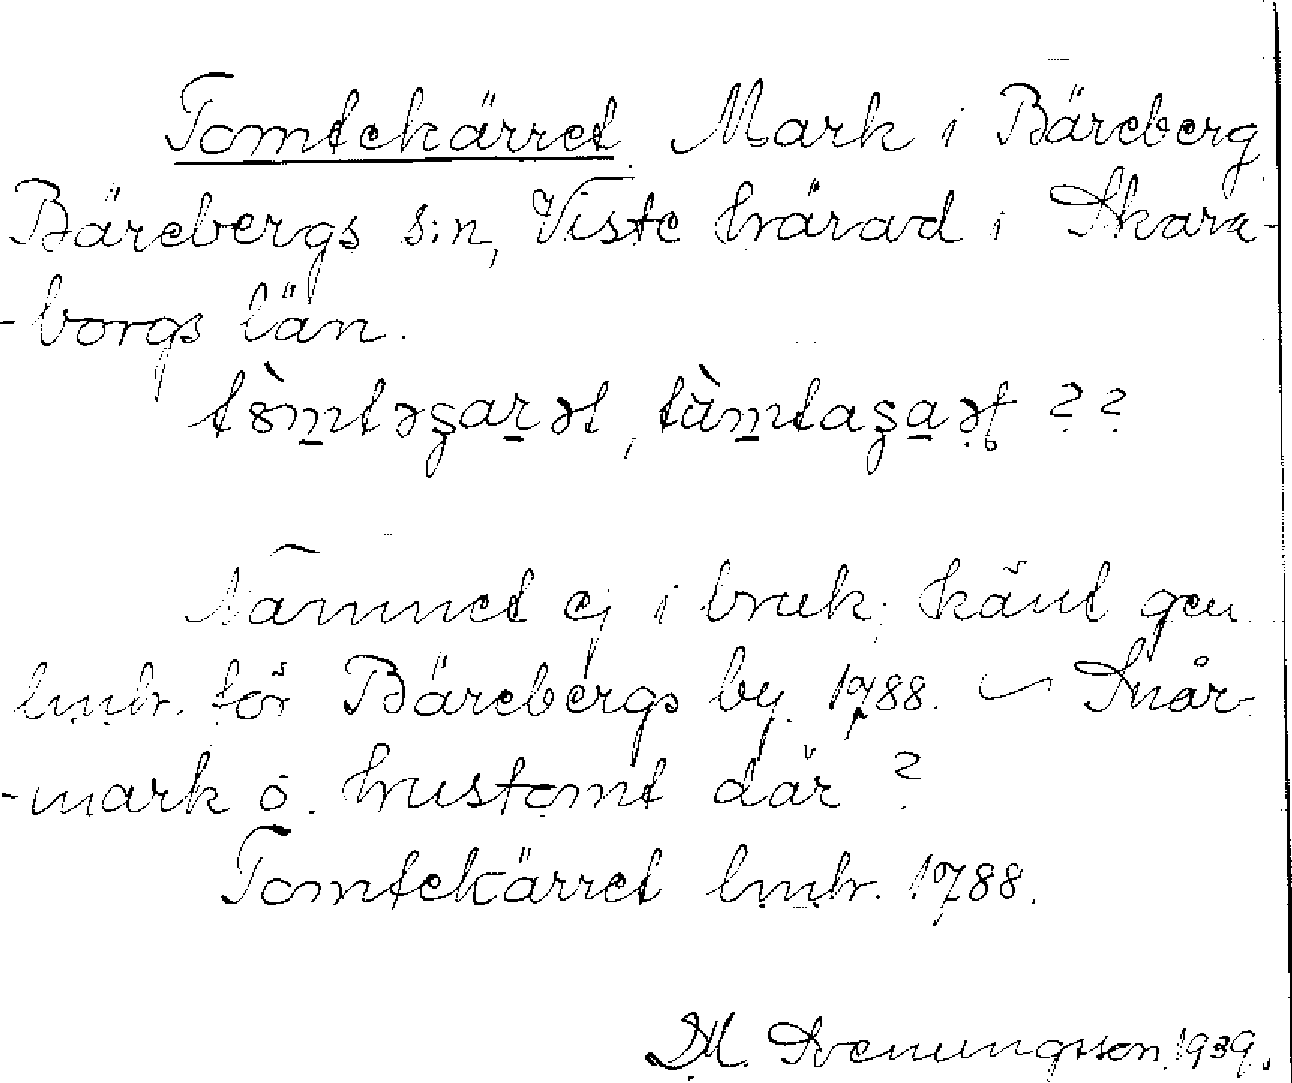 Tomtekärret. Mark i Bäreberg,
Bärebergs s:n, Viste härad i Skara-
-borgs län.
tòm̱təʂaṟət, tàm̱taʂa̱ət ??
Namnet ej i bruk; känt gen.
lmh. för Bärebergs by. 1788. Snår-
-mark o. hustomt där?
Tomtekärret lmh. 1788.
D.M. Svenungsson. 1939.